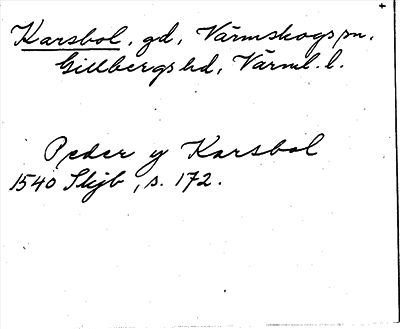 Karsbol, gd, Värmskogs sn,
Gillbergs hd, Värml. l.
Peder y Karsbol
1540 Skjb, s. 172.